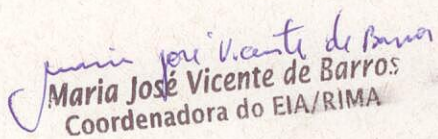 Maria José Vicente de Barros
Maria José Vicente de Barros
Coordenadora do EIA/RIMA